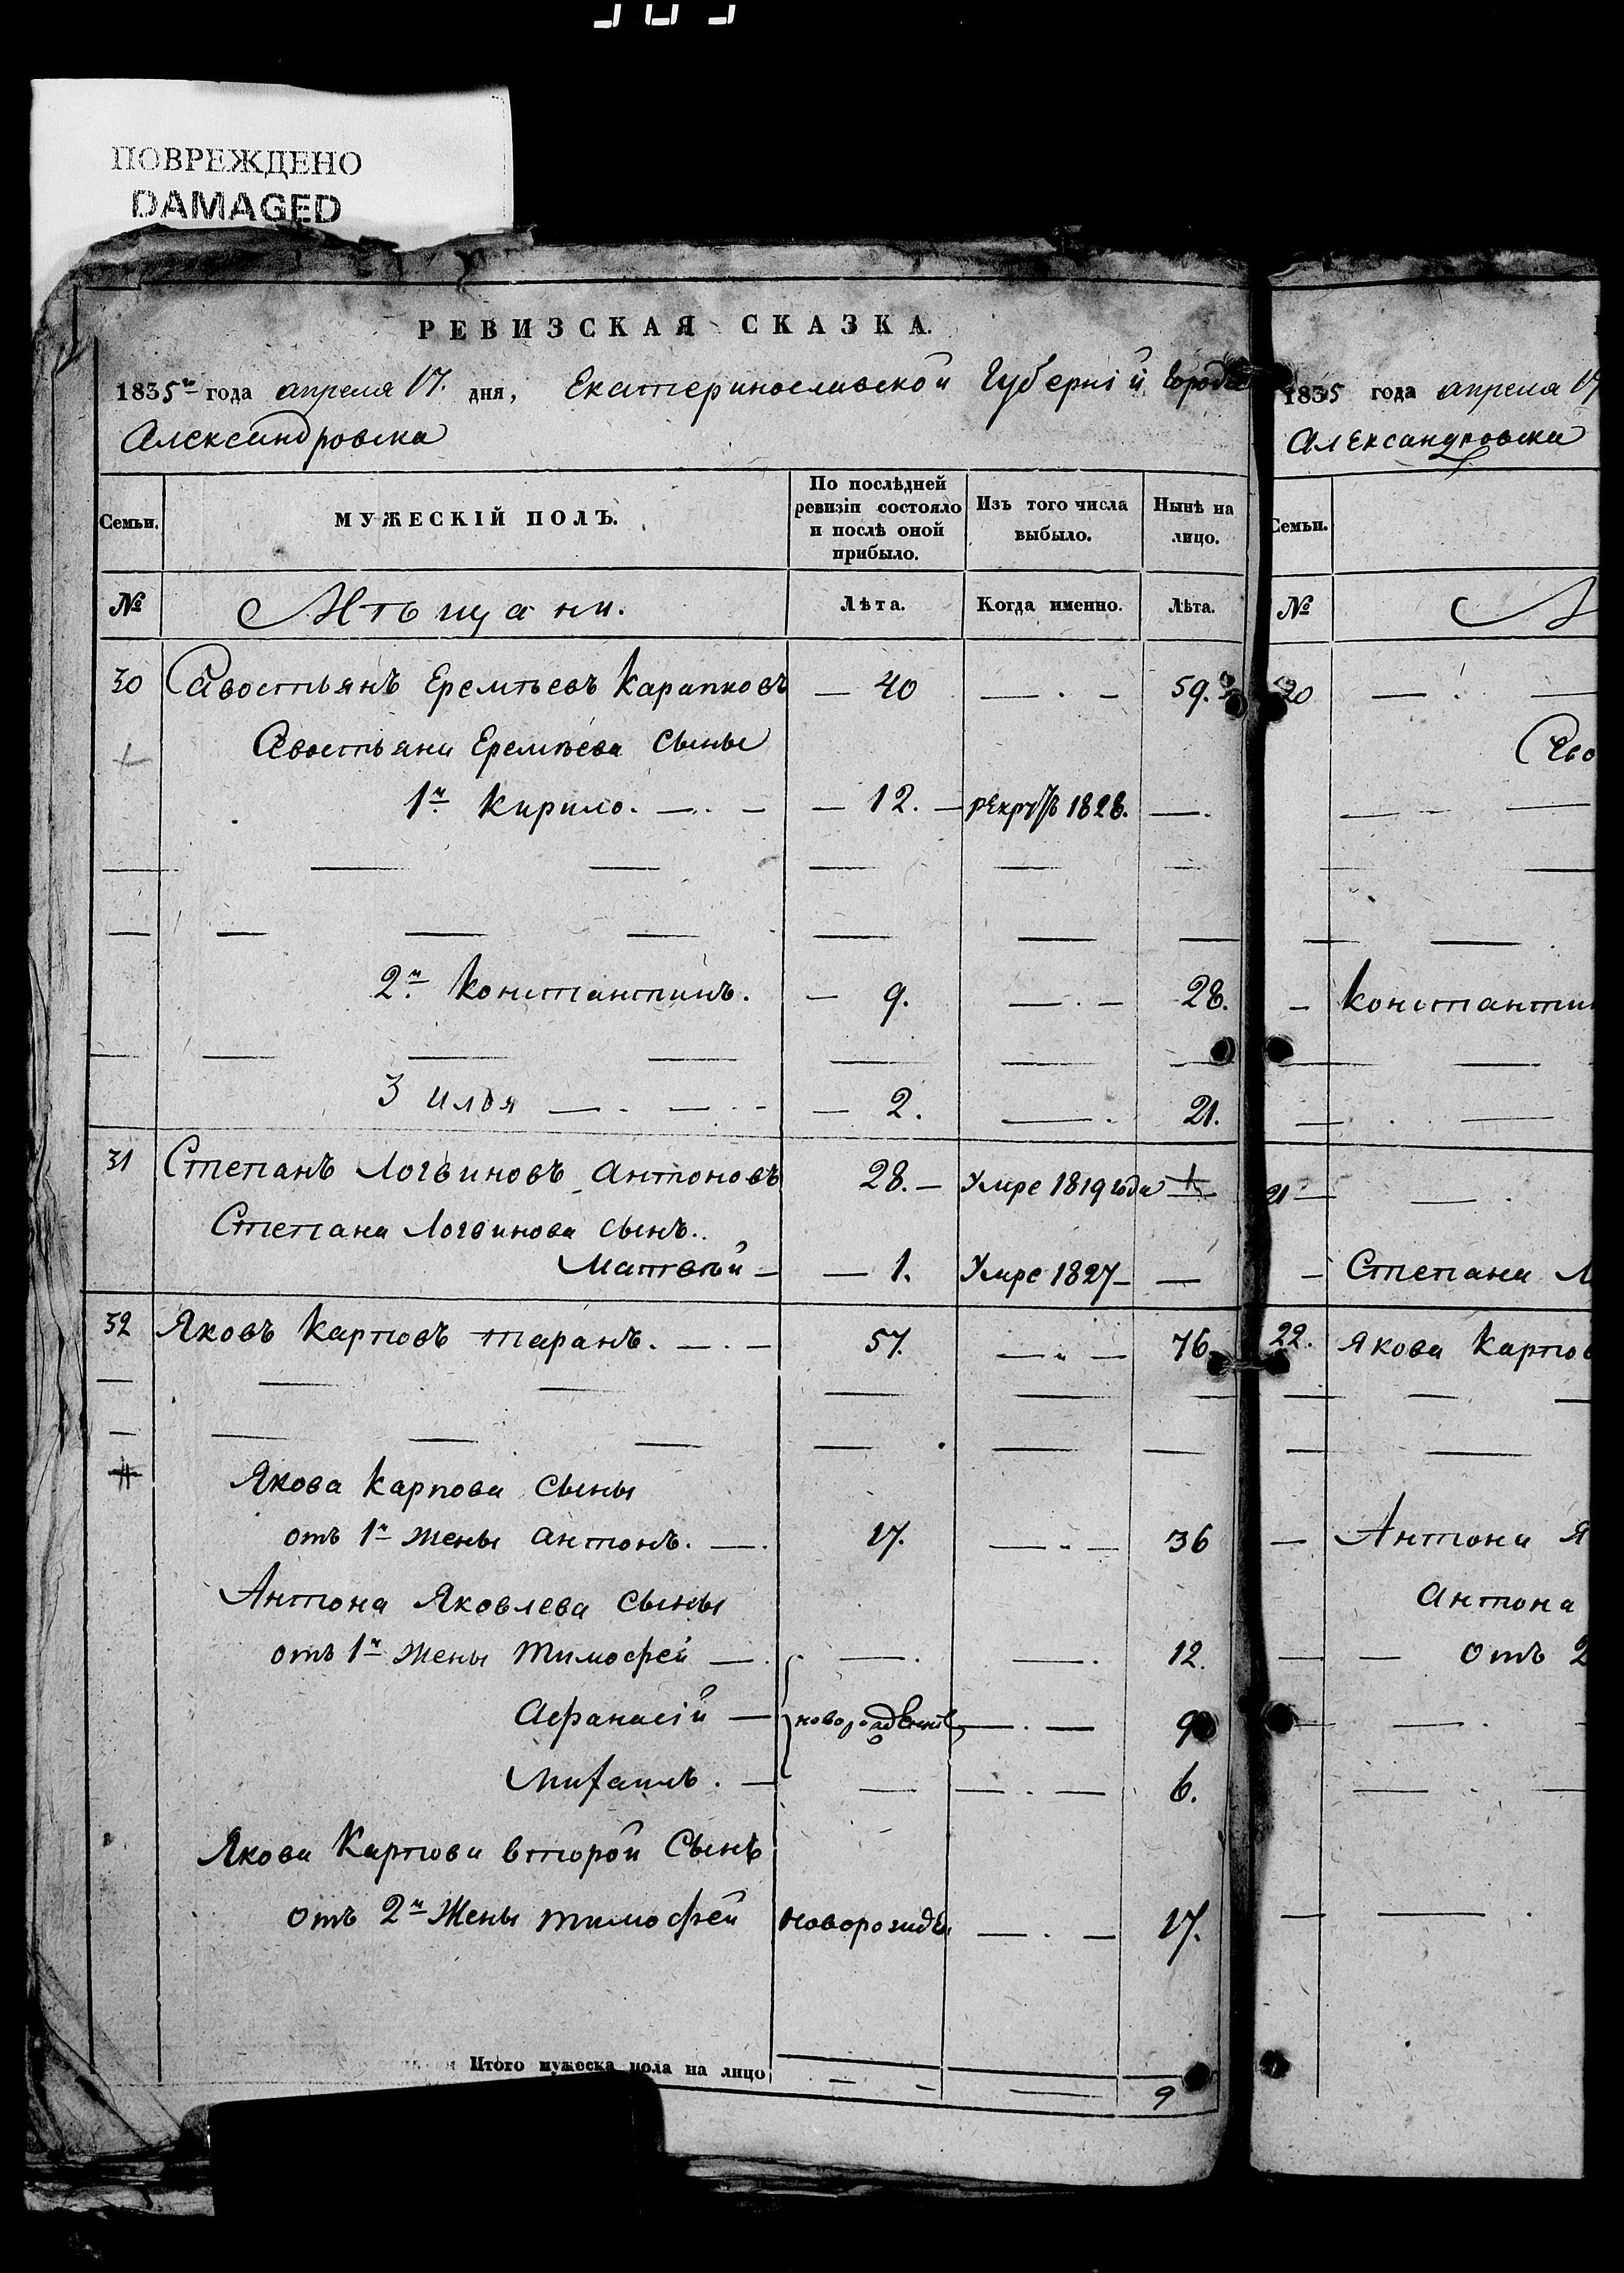 ПОВРЕЖДЕНО
DAMAGED
РЕВИЗСКАЯ СКАЗКА.
1835го года апреля 17. дня, Екатеринославской Губерніи города
Александровска
Семьи. МУЖЕСКІЙ ПОЛЪ. По послѣдней ревизіи состояло и послѣ оной прибыло. Изъ того числа выбыло. Нынѣ на лицо.
№ Мѣщани. Лѣта. Когда именно. Лѣта.
30 Савостьянъ Еремѣевъ Карапковъ — 40 — . — 59.
Савостьяна Еремѣева сыны
1й Кирило. — . — — 12. — рекрутъ 1828. — .
2й Константинъ. — 9. — . — 28.
3 Илья — . — . - — 2. — . 21.
31 Степанъ Логвиновъ Антоновъ 28. — Умре 1819 года —
Степана Логвинова сынъ..
Матвѣй — — 1. Умре 1827 — —
32 Яковъ Карповъ Таранъ. — . — 57. — . — 76.
Якова Карпова сыны
отъ 1й жены Антонъ. — . 17. — . — 36
Антона Яковлева сыны
отъ 1й жены Тимофей — . — . — . 12.
Афанасій — новорожденные — . — 9
Михаилъ. — — — . — 6.
Якова Карпова второй сынъ
отъ 2й жены Тимофей новорожде. — . — 17.
Итого мужеска пола на лицо — — — 9
1835 года апреля 17
Александровска
Семьи.
№
Константин
Степана Л
22. Якова Карпов
Антона Я
Антона
отъ 2